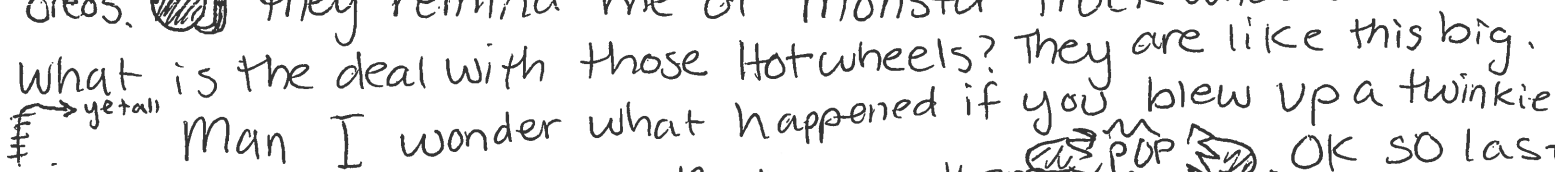 oreos. they remind me of monstu truck
What is the deal with those Hotwheels? They are like this big.
yetall Man I wonder what happened if you blew up a twinkie
POP OK so last